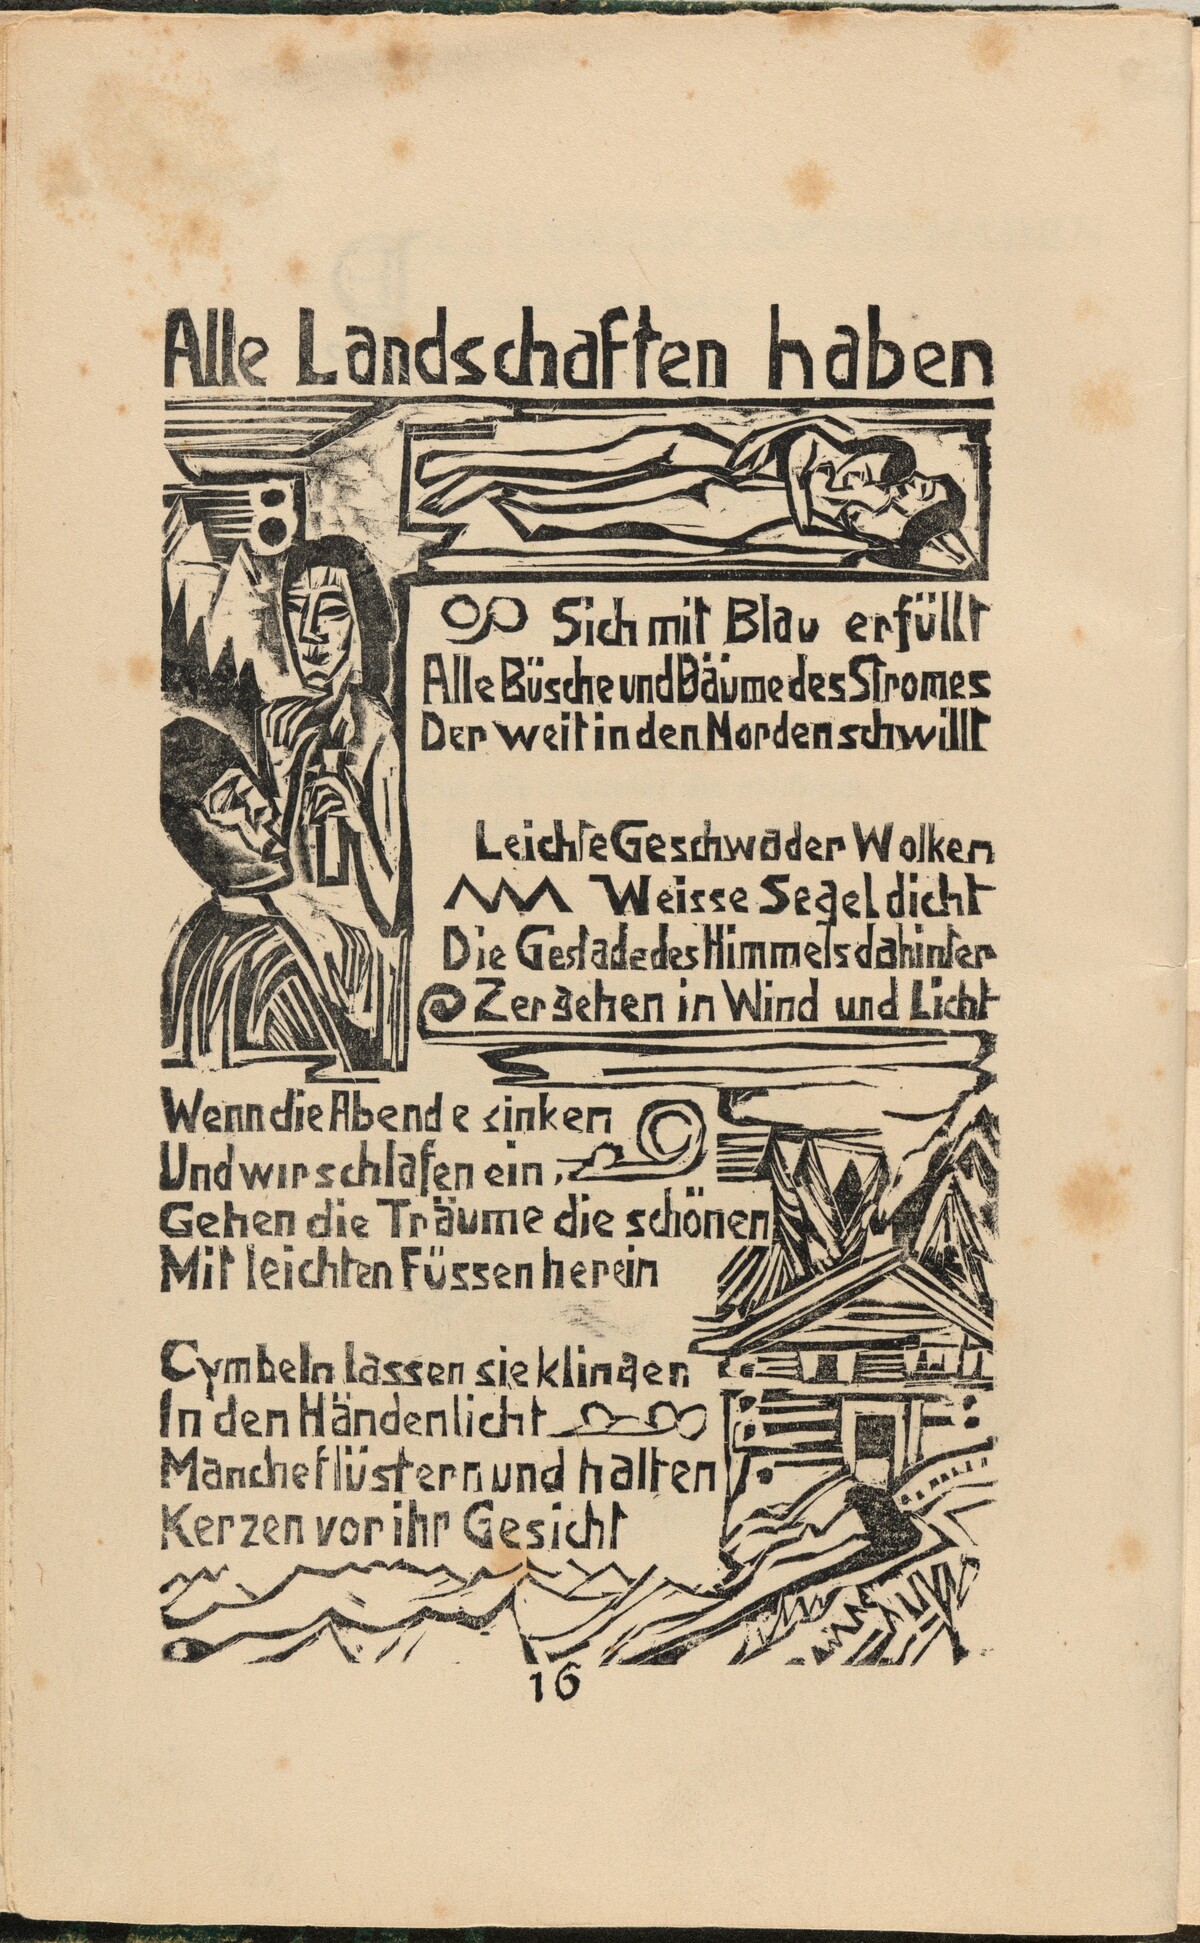 Alle Landschaften haben
Sich mit Blau erfüllt
Alle Büsche und Bäume des Stromes
Der weit in den Norden schwillt
Leichte Geschwader Wolken
Weisse Segel dicht
Die Gestade des Himmels dahinter
Zergehen in Wind und Licht
Wenn die Abende sinken
Und wir schlafen ein,
Gehen die Träume die schönen
Mit leichten Füssen herein
Cymbeln lassen sie klingen
In den Händen licht
Manche flüstern und halten
Kerzen vor ihr Gesicht
16